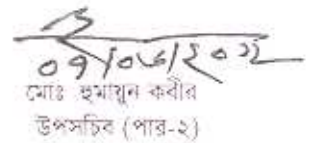 ০৭/০৬/২০২২
মোঃ হুমায়ুন কবীর
উপসচিব (পার-২)